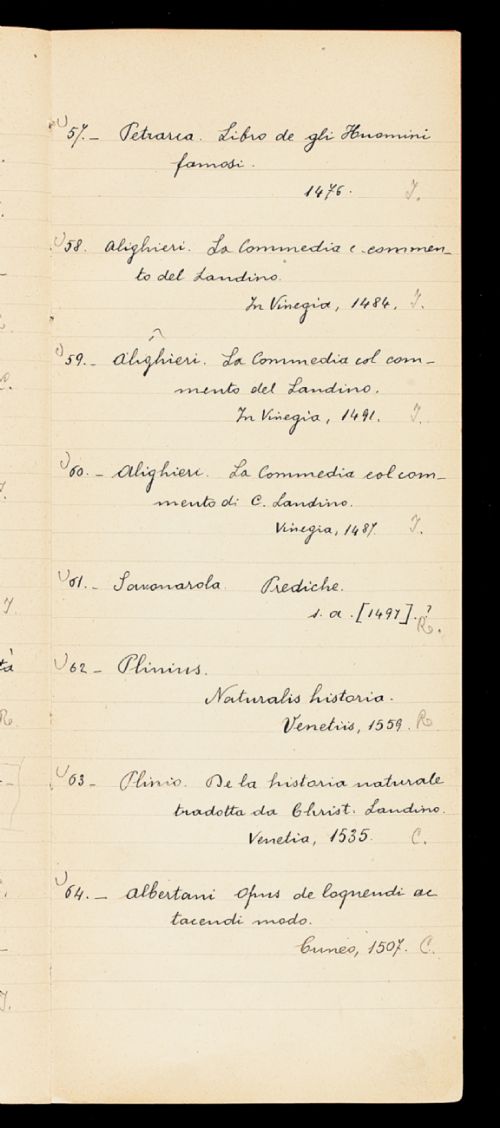 57. — Petrarca. Libro de gli Huomini
famosi.
1476. I.
58. Alighieri. La Commedia c. commen-
to del Landino.
In Vinegia, 1484. I.
59. — Alighieri. La Commedia col com-
mento del Landino.
In Vinegia, 1491. I.
60. — Alighieri. La Commedia col com-
mento di C. Landino.
Vinegia, 1487. I.
61. — Savonarola. Prediche.
s. a. [1497].? R.
62 — Plinius.
Naturalis historia.
Venetiis, 1559. R
63 — Plinio. De la historia naturale
tradotta da Christ. Landino.
Venetia, 1535. C.
64. — Albertani Opus de loquendi ac
tacendi modo.
Cuneo, 1507. C.